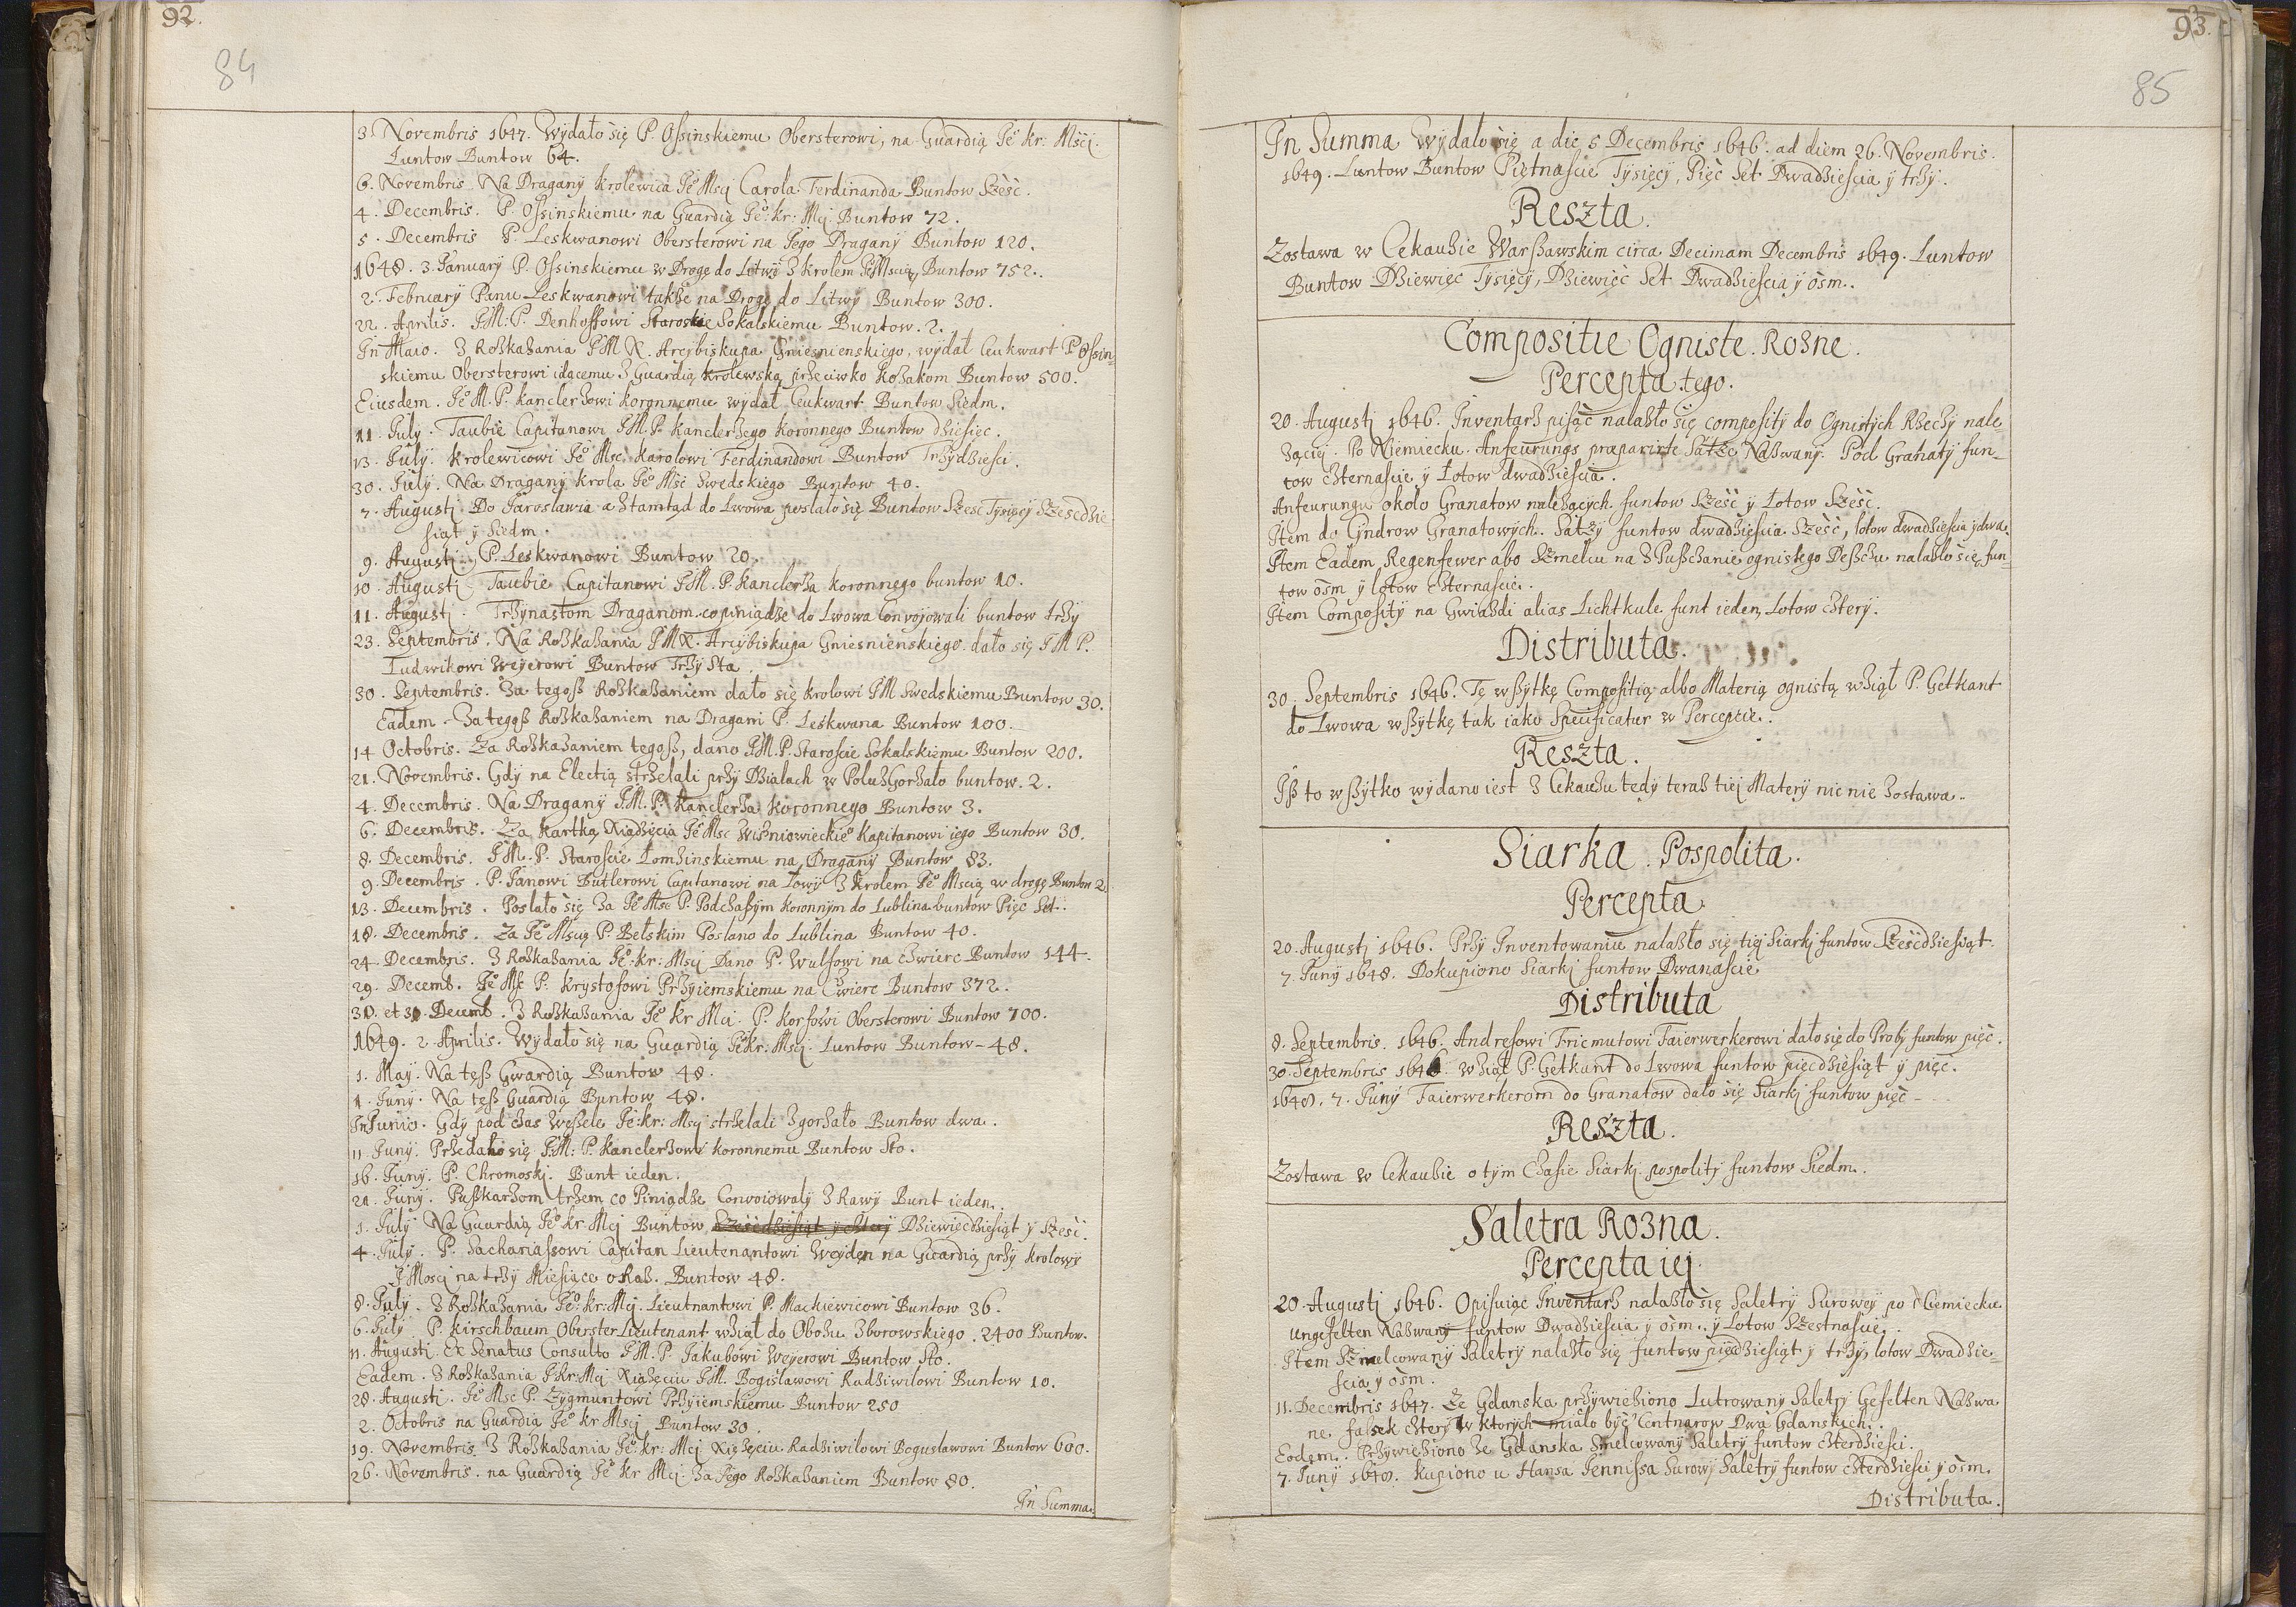 92.
84
3 Novembris 1647. Wydało się P. Ossinskiemu Obersterowi, na Guardią Jeº kr: Mści.
Luntow Buntow 64.
6. Novembris. Na Dragany krolewica Jeº Msci Carola Ferdinanda Buntow Sześc.
4. Decembris. P. Ossinskiemu na Guardią Jeº: kr: Mci Buntow 72.
5. Decembris P. Leskwanowi Obersterowi na Jego Dragany Buntow 120.
1648. 3. January P. Ossinskiemu w Drogę do Litwy z krolem JeMscią Buntow 752..
2. February Panu Leskwanowi takze na Drogę do Litwy Buntow 300.
22. Aprilis. JM: P. Denhoffowi Staroscie Sokalskiemu Buntow. 2.
In Maio. Z Rozkazania JM X. Arcybiskupa Gniesnienskiego, wydał Ceukwart P Ossin-
skiemu Obersterowi idącemu z Guardią krolewską przeciwko kozakom Buntow 500.
Eiusdem. Jeº M. P. kanclerzowi koronnemu wydał Ceukwart Buntow Siedm.
11. July. Taubie Capitanowi JM. P. kanclerzego koronnego Buntow dziesięc.
13. July. krolewicowi Jeº Msc. karolowi Ferdinandowi Buntow Trzydziesci.
30. July. Na Dragany krola Jeº Msc Swedskiego Buntow 40.
7. Augusti Do Jaroslawia a ztamtąd do Lwowa posłało się Buntow Szesc Tysięcy Szescdzie
siąt y siedm.
9. Augusti. P. Leskwanowi Buntow 20.
10. Augusti Taubie Capitanowi JM. P. kanclerza koronnego buntow 10.
11. Augusti. Trzynastom Draganom co piniadze do Lwowa Convojowali buntow trzy
23. Septembris. Na Rozkazania JM X. Arcybiskupa Gniesnienskiego dało się JM P.
Ludwikowi Weyerowi Buntow Trzy Sta.
30. Septembris. Za tegoß Rozkazaniem dało się krolowi JM Swedskiemu Buntow 30.
Eadem. Za tegoß Rozkazaniem na Dragani P. Leskwana Buntow 100.
14 Octobris. Za Rozkazaniem tegoß, dano JM. P. Staroscie Sokalskiemu Buntow 200.
21. Novembris. Gdy na Electią strzelali przy Dzialach w Polu zgorzało buntow. 2.
4. Decembris. Na Dragany JM. P. kanclerza koronnego Buntow 3.
6. Decembris. Za kartką Xiądzęcia Jeº Msc Wisniowieckieº kapitanowi iego Buntow 30.
8. Decembris. JM. P. Staroscie Łomzinskiemu na Dragany Buntow 83.
9. Decembris. P. Janowi Butlerowi Capitanowi na Łowy z krolem Jeº Mscią w drogę Buntow 2.
13. Decembris. Posłało się za Jeº Msc P. Podczaßym koronnym do Lublina buntow Pięc Set.
18. Decembris. Za Jeº Mscią P. Bełskim Posłano do Lublina Buntow 40.
24. Decembris. Z Rozkazania Jeº: kr: Msci Dano P. Wulfowi na czwierc Buntow 144.
29. Decemb. Jeº Msc P. krystofowi Przyiemskiemu na Cwierc Buntow 372.
30. et 31. Decemb. Z Rozkazania Jeº kr Mci. P. korfowi Obersterowi Buntow 700.
1649. 2 Aprilis. Wydało się na Guardią Jeº kr: Msci. Luntow Buntow – 48.
1. May. Na tęß Gwardią Buntow 48.
1. Juny. Na tęß Guardią Buntow 48.
In Junio. Gdy pod czas Weßele Jeº: kr: Msci strzelali zgorzało Buntow dwa.
11. Juny. Przedało się JM: P. kanclerzowi koronnemu Buntow Sto.
16. Juny. P. Chromoski. Bunt ieden.
21. Juny. Pußkarzom trzem co Piniądze Convoiowaly z Rawy Bunt ieden.
1. July Na Guardią Jeº kr Mci Buntow Dziewiędziesiąt y Szesc.
4. July. P. Sachariassowi Capitan Lieutenantowi Weyden na Gwardią przy krolowy
JMosci na trzy Miesiące okaz. Buntow 48.
8. July. Z Rozkazania Jeº: kr: Mci. Lieutnantowi P. Mackiewicowi Buntow 36.
6. July P. kirschbaum Oberster Lieutenant wziął do Obozu Zborowskiego. 2400 Buntow.
11. Augusti. Ex Senatus Consulto JM. P. Jakubowi Weyerowi Buntow Sto.
Eadem. Z Rozkazania Jkr: Mci Xiązęciu JM. Bogislawowi Radziwilowi Buntow 10.
28. Augusti. Jeº Msc P. Zygmuntowi Przyiemskiemu Buntow 250
2. Octobris na Guardią Jeº kr Msci Buntow 30.
19. Novembris Z Rozkazania Jeº: kr: Mci Xięzęciu Radziwilowi Boguslawowi Buntow 600.
26. Novembris. na Guardią Jeº kr Mci. za Jego Rozkazaniem Buntow 80.
In Summa.
93.
85
In Summa Wydało się a die 5 Decembris 1646. ad diem 26. Novembris.
1649. Luntow Buntow Piętnascie Tysięcy, Pięc Set Dwadziescia y trzy.
Reszta.
Zostawa w Cekauzie Warßawskim circa Decimam Decembris 1649. Luntow
Buntow Dziewięc Tysięcy, Dziewięc Set Dwadziescia y osm..
Compositie Ogniste. Rozne.
Percepta tego.
20. Augusti 1646. Inventarz pisąc nalazło się composity do Ognistych Rzeczy nale
zącej. Po Niemiecku. Anfeurungs præparirte Sätze Nazwany. Pod Granaty fun-
tow czternascie y Łotow dwadziescia.
Anfeurungu okolo Granatow nalezących funtow Szesc y Łotow Szesc.
Item do Cyndrow Granatowych. Satzy funtow dwadziescia Szesc, łotow dwadziescia y dwa.
Item Eadem Regenfewer abo Szmelcu na zPußczanie ognistego Deßczu nalazło się fun-
tow osm y łotow czternascie..
Item Composity na Gwiazdi alias Lichtkule funt ieden, Lotow cztery.
Distributa.
30. Septembris 1646. Tę wßytkę Compositią albo Materią ognistą wziął P. Getkant
do Lwowa wßytkę tak iako Specificatur w Percepcie..
Reszta.
Iß to wßytko wydano iest z Cekauzu tedy teraz tiej Matery nic nie zostawa..
Siarka Pospolita.
Percepta
20. Augusti 1646. Przy Inventowaniu nalazło się tiej Siarki funtow Szescdziesiąt.
7. Juny 1648. Dokupiono Siarki funtow Dwanascie
Distributa
8. Septembris. 1646. Andresowi Fricmutowi Faierwerkerowi dało się do Proby funtow pięc.
30. Septembris 1646. wziął P. Getkant do Lwowa funtow pięcdziesiąt y pięc.
1648. 7. Juny Faierwerkerom do Granatow dało się Siarki funtow pięc –
Reszta.
Zostawa w Cekauzie o tym Czasie Siarki pospolity funtow Siedm.
Saletra Rozna.
Percepta iej.
20. Augusti 1646. Opisuiąc Inventarz nalazło się Saletry Surowey po Niemiecku
ungefelten Nazwany funtow Dwadziescia y osm. y Lotow Szestnascie..
Item Szmelcowany Saletry nalazło się funtow pięcdziesiąt y trzy, lotow Dwadzie-
scia y osm.
11. Decembris 1647. Ze Gdanska przywieziono Lutrowany Saletry Gefelten Nazwa
ne. fasek cztery w ktorych miało być Centnarow Dwa Gdanskich.
Eodem. Przywieziono ze Gdanska Smelcowany Saletry funtow czterdziesci.
7. Juny 1648. kupiono u Hansa Jennissa Surowy Saletry funtow czterdziesci y osm.
Distributa.